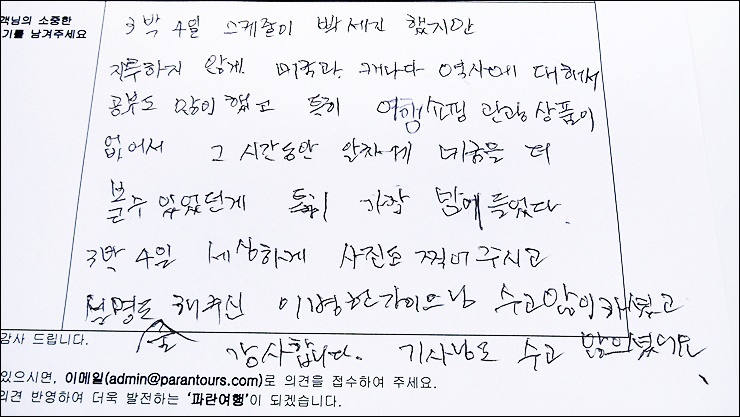 객님의 소중한
기를 남겨주세요
3박 4일 스케줄이 빡세진 했지만
지루하지 않게. 미국과 캐나다 역사에 대해서
공부도 많이 했고 특히 여행 쇼핑 관광 상품이
없어서 그 시간동안 알차게 미국을 더
볼수 있었던게 특히 가장 맘에 들었다.
3박 4일 세상하게 사진도 찍어주시고
설명도 해주신 이병한가이드님 수고많이하셨고
감사합니다. 기사님도 수고 많으셨어요
감사 드립니다.
있으시면, 이메일(admin@parantours.com)로 의견을 접수하여 주세요.
의견 반영하여 더욱 발전하는 '파란여행'이 되겠습니다.